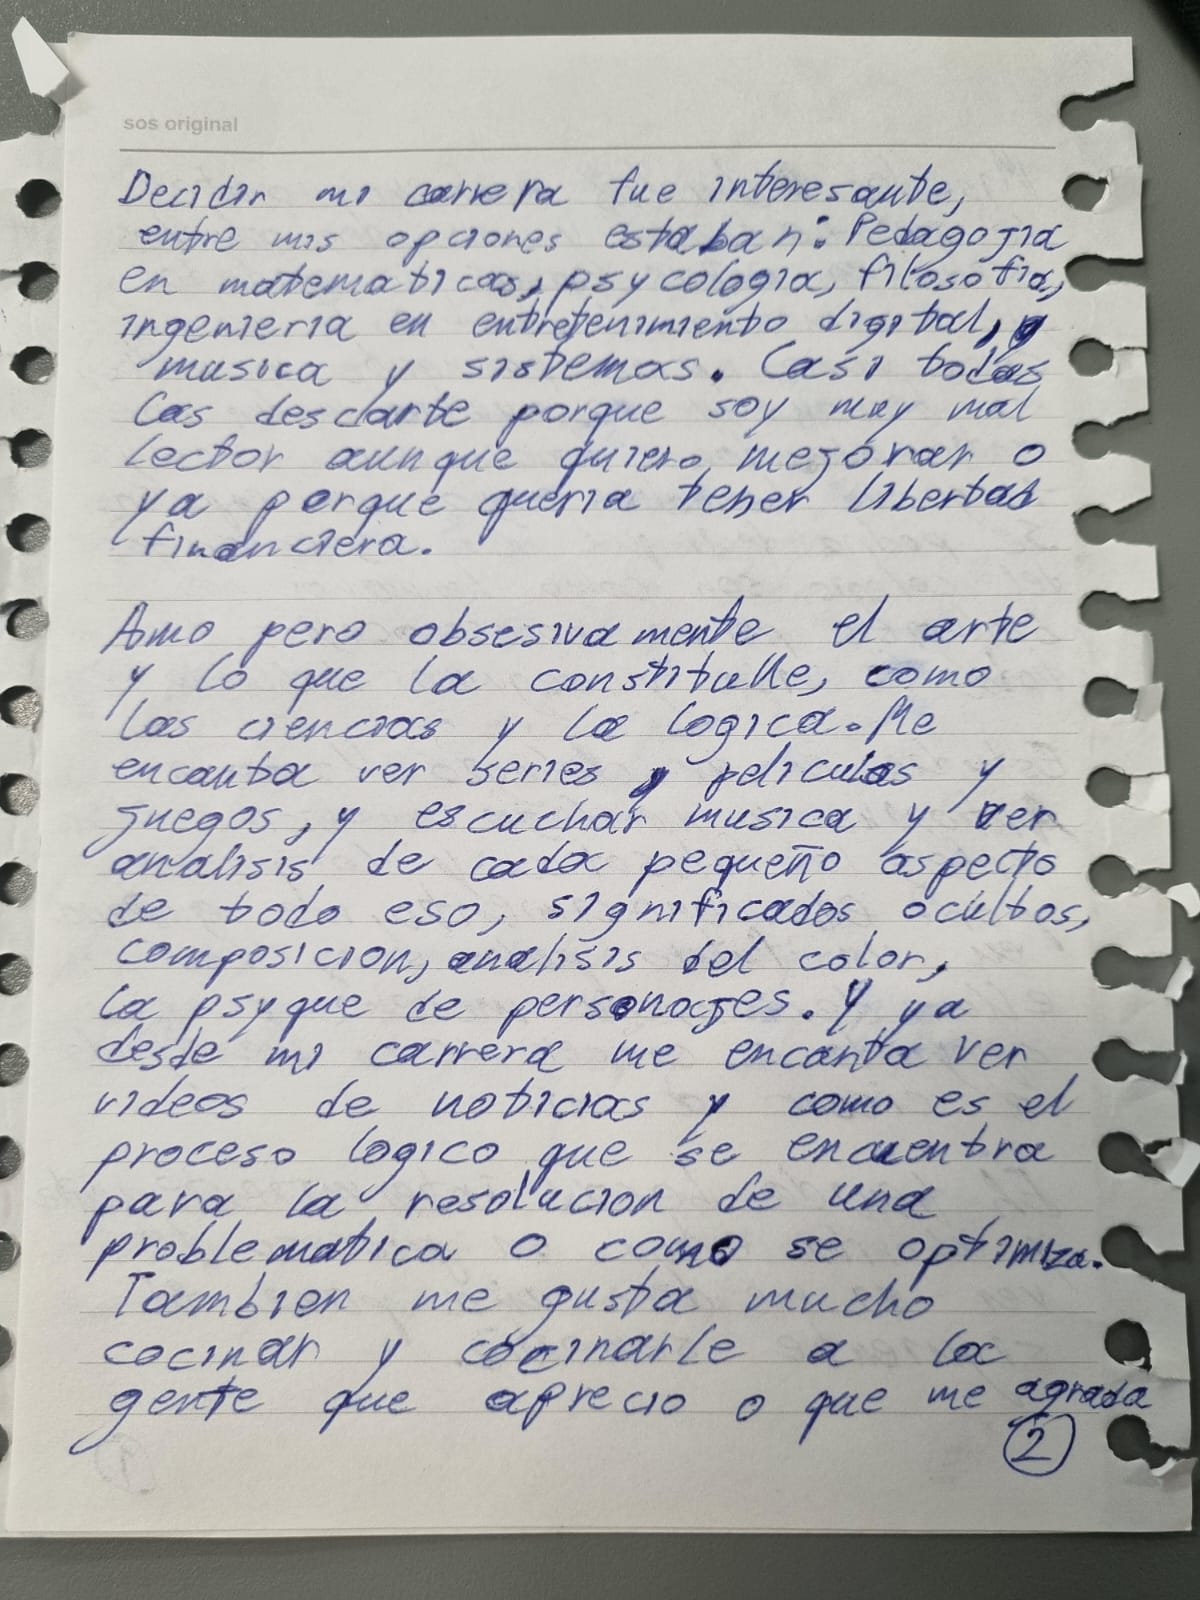 sos original
Decidir mi carrera fue interesante,
entre mis opciones estaban: Pedagogia
en matematicas, psycologia, filosofia,
ingenieria en entretenimiento digital,
musica y sistemas. Casi todas
las descarte porque soy muy mal
lector aunque quiero mejorar o
ya porque queria tener libertad
financiera.
Amo pero obsesivamente el arte
y lo que la constitulle, como
las ciencias y la logica. Me
encanta ver series, peliculas y
juegos, y escuchar musica y ver
analisis de cada pequeño aspecto
de todo eso, significados ocultos,
composicion, analisis del color,
la psyque de personajes. Y ya
desde mi carrera me encanta ver
videos de noticias y como es el
proceso logico que se encuentra
para la resolucion de una
problematica o como se optimiza.
Tambien me gusta mucho
cocinar y cocinarle a la
gente que aprecio o que me agrada
2